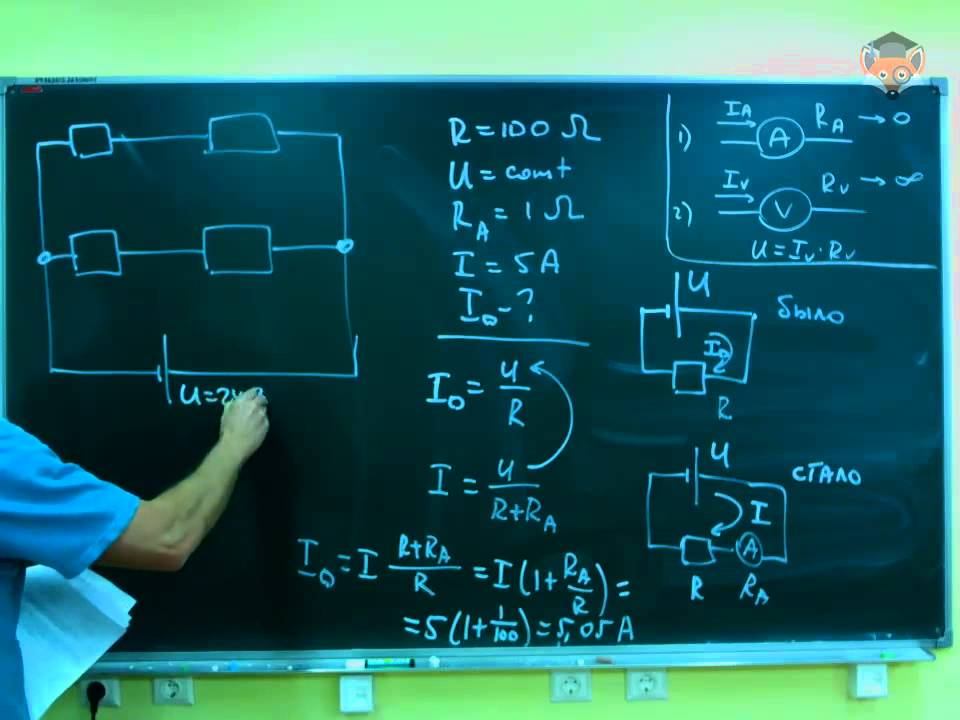 U=24В
R=100 Ω
U=const
R_A=1 Ω
I=5A
I₀-?
I₀=U/R
I=U/(R+R_A)
I₀=I (R+R_A)/R =I(1+R_A/R)=
=5(1+1/100)=5,05A
1) I_A A R_A→0
2) I_V V R_V→∞
U=I_V·R_V
U
было
I₀
R
U
стало
I
A
R R_A